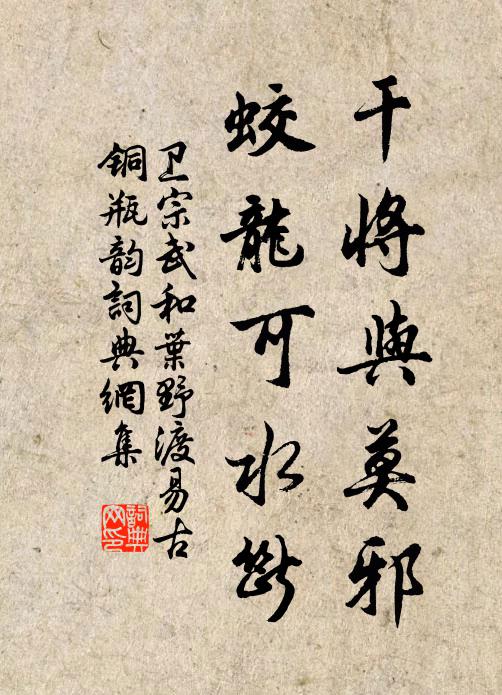 干將與莫邪
蛟龍可水斷
卫宗武和葉野渡易古
銅瓶韵詞典網集
詞典網印